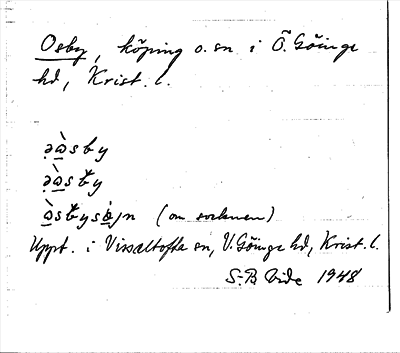 Osby, köping o. sn i Ö. Göinge
hd, Krist. l.
ə̣ὰsby
ə̣ὰsƀy
ὰsƀysòȷn (om socknen)
Uppt. i Vissaltofta sn, V. Göinge hd, Krist. l.
S-B Vide 1948